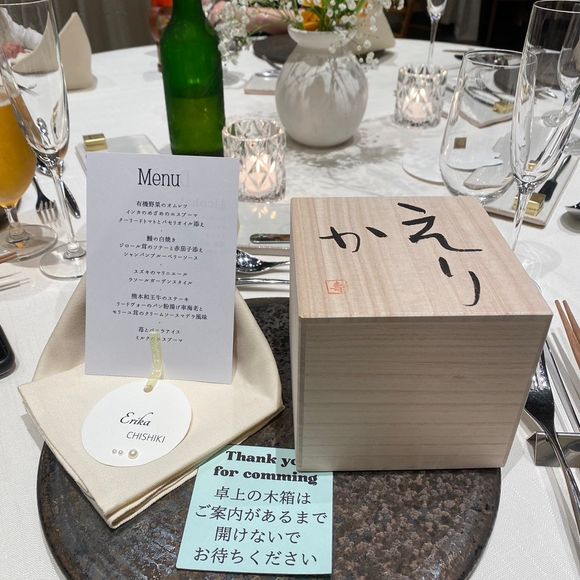 Menu
有機野菜のオムレツ
インカのめざめのエスプーマ
チーリードトマトとバセリオイル添え
鰻の白焼き
ジロール茸のソテーと赤茄子添え
シャンパンブルーベリーソース
スズキのマリニエール
ラソールガーデンスタイル
熊本和王牛のステーキ
リードヴォーのパン粉揚げ車海老と
モリーユ茸のクリームソースマデラ風味
苺と
アイス
ミルク
エスプーマ
Erika
CHISHIKI
えりか
Thank yo
for comming
卓上の木箱は
ご案内があるまで
開けないで
お待ちください